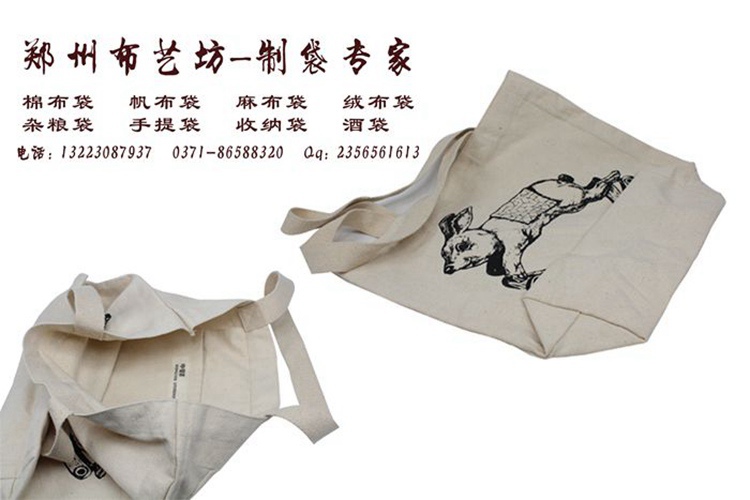 郑州布艺坊—制袋专家
棉布袋 帆布袋 麻布袋 绒布袋
杂粮袋 手提袋 收纳袋 酒袋
电话：13223087937 0371-86588320 Qq：2356561613